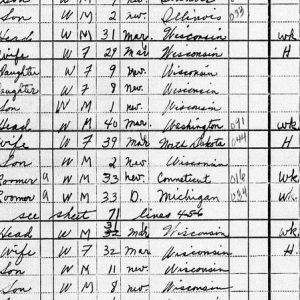 Son W M 2 nev. Illinois 033
Head W M 31 Mar. Wisconsin wk
Wife W F 29 Mar Wisconsin H
Daughter W F 9 nev. Wisconsin
Daughter W F 8 Nev. Wisconsin
Son W M 1 nev. Wisconsin
Head W M 40 mar. Washington 091 wk
Wife W F 39 Mar North Dakota 044 H
Son W M 2 nev Wisconsin
Roomer 9 W M 33 nev. Connecticut 016 wk
Roomer 9 W M 33 D. Michigan 034 W
see sheet 71 lines 4-5-6
Head W M 31 Mar Wisconsin wk
Wife W F 32 Mar Wisconsin H.
Son W M 11 nev Wisconsin
Son W M 8 nev. Wisconsin